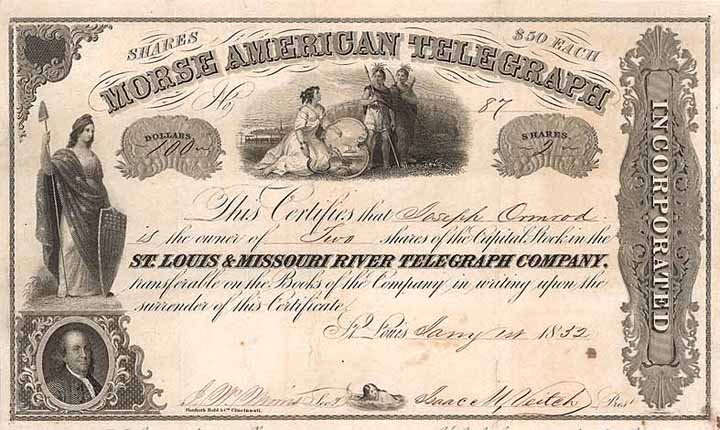 SHARES $50 EACH
MORSE AMERICAN TELEGRAPH
No 87
DOLLARS.
100
SHARES.
2
This Certifies that Joseph Ormrod
is the owner of Two shares of the Capital Stock in the
ST. LOUIS & MISSOURI RIVER TELEGRAPH COMPANY,
transferable on the Books of the Company in writing upon the
surrender of this Certificate.
St. Louis Jany 1st 1852
Secy
Isaac M. Veitch Prest
Danforth Bald & Co. Cincinnati.
INCORPORATED